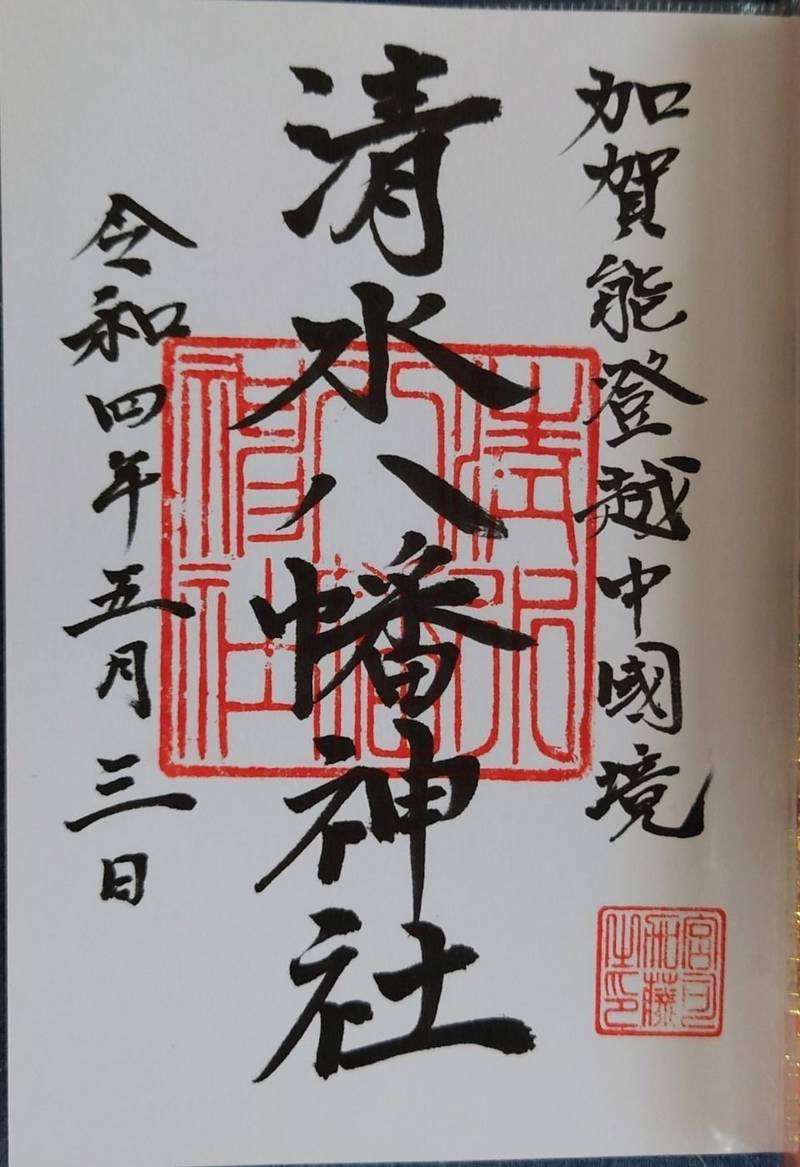 加賀能登越中國境
清水八幡神社
令和四年五月三日
清水八幡神社
宮司和藤之印